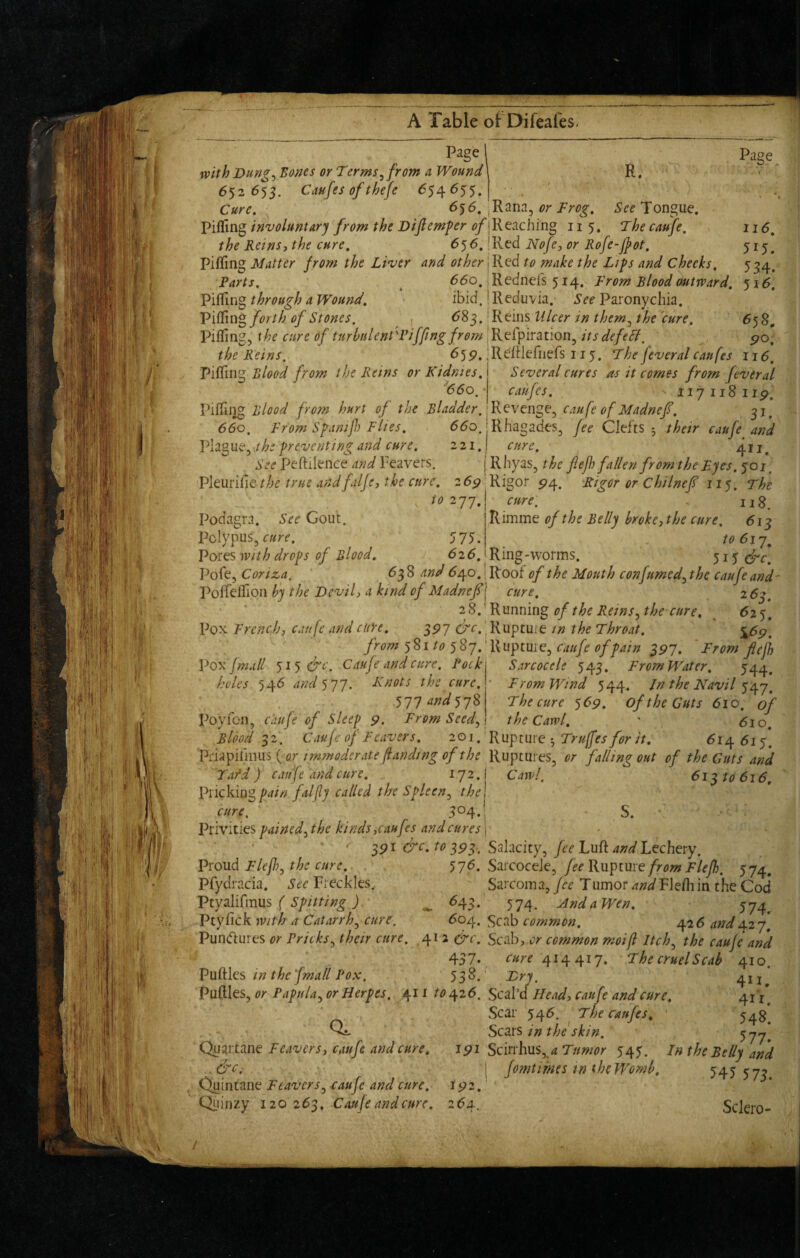 A Table of Diſeaſes.
Page
with Dung, Bones or Terms, from a Wound
652 653. Cauſes of theſe 654 655.
Cure. 656.
Piſſing involuntary from the Diſtemper of
the Reins, the cure. 656.
Piſſing Matter from the Liver and other
Parts. 660.
Piſſing through a Wound. ibid.
Piſſing forth of Stones. 683.
Piſſing, the cure of turbulent Piſſing from
the Reins. 659.
Piſſing Blood from the Reins or Kidnies.
660.
Piſſing Blood from hurt of the Bladder.
660. From Spaniſh Flies. 660.
Plague, the preventing and cure. 221.
See Peſtilence and Feavers.
Pleuriſie the true and falſe, the cure. 269
to 277.
Podagra. See Gout.
Polypus, cure. 575.
Pores with drops of Blood. 626.
Poſe, Coriza. 638 and 640.
Poſſeſſion by the Devil, a kind of Madneſs
28.
Pox French, cauſe and cure. 397 &c.
from 581 to 587.
Pox ſmall 515 &c. Cauſe and cure. Pock
holes 546 and 577. Knots the cure.
577 and 578
Poyſon, cauſe of Sleep 9. From Seed,
Blood 32. Cauſe of Feavers. 201.
Priapiſmus (or immoderate ſtanding of the
Yard) cauſe and cure. 172.
Pricking pain falſly called the Spleen, the
cure. 304.
Privities pained, the kinds, cauſes and cures
391 &c. to 393.
Proud Fleſh, the cure. 576.
Pſydracia. See Freckles.
Ptyaliſmus (Spitting) 643.
Ptyſick with a Catarrh, cure. 604.
Punctures or Pricks, their cure. 412 &c.
437.
Puſtles in the ſmall Pox. 538.
Puſtles, or Papula, or Herpes. 411 to 426.
Q.
Quartane Feavers, cauſe and cure. 191
&c.
Quintane Feavers, cauſe and cure. 192.
Quinzy 120 263. Cauſe and cure. 264.
Page
R.
Rana, or Frog. See Tongue.
Reaching 115. The cauſe. 116.
Red Noſe, or Roſe-ſpot. 515.
Red to make the Lips and Cheeks. 534.
Redneſs 514. From Blood outward. 516.
Reduvia. See Paronychia.
Reins Ulcer in them, the cure. 658.
Reſpiration, its defect. 90.
Reſtleſneſs 115. The ſeveral cauſes 116.
Several cures as it comes from ſeveral
cauſes. 117 118 119.
Revenge, cauſe of Madneſs. 31.
Rhagades, ſee Clefts; their cauſe and
cure. 411.
Rhyas, the fleſh fallen from the Eyes. 501.
Rigor 94. Rigor or Chilneſs 115. The
cure. 118.
Rimme of the Belly broke, the cure. 613
to 617.
Ring-worms. 515 &c.
Root of the Mouth conſumed, the cauſe and
cure. 263.
Running of the Reins, the cure. 625.
Rupture in the Throat. 569.
Rupture, cauſe of pain 397. From fleſh
Sarcocele 543. From Water. 544.
From Wind 544. In the Navil 547.
The cure 569. Of the Guts 610. Of
the Cawl. 610.
Rupture; Truſſes for it. 614 615.
Ruptures, or falling out of the Guts and
Cawl. 613 to 616.
S.
Salacity, ſee Luſt and Lechery.
Sarcocele, ſee Rupture from Fleſh. 574.
Sarcoma, ſee Tumor and Fleſh in the Cod
574. And a Wen. 574.
Scab common. 426 and 427.
Scab, or common moiſt Itch, the cauſe and
cure 414 417. The cruel Scab 410.
Dry. 411.
Scal'd Head, cauſe and cure. 411.
Scar 546. The cauſes. 548.
Scars in the skin. 577.
Scirrhus, a Tumor 545. In the Belly and
ſomtimes in the Womb. 545 573.
Sclero-